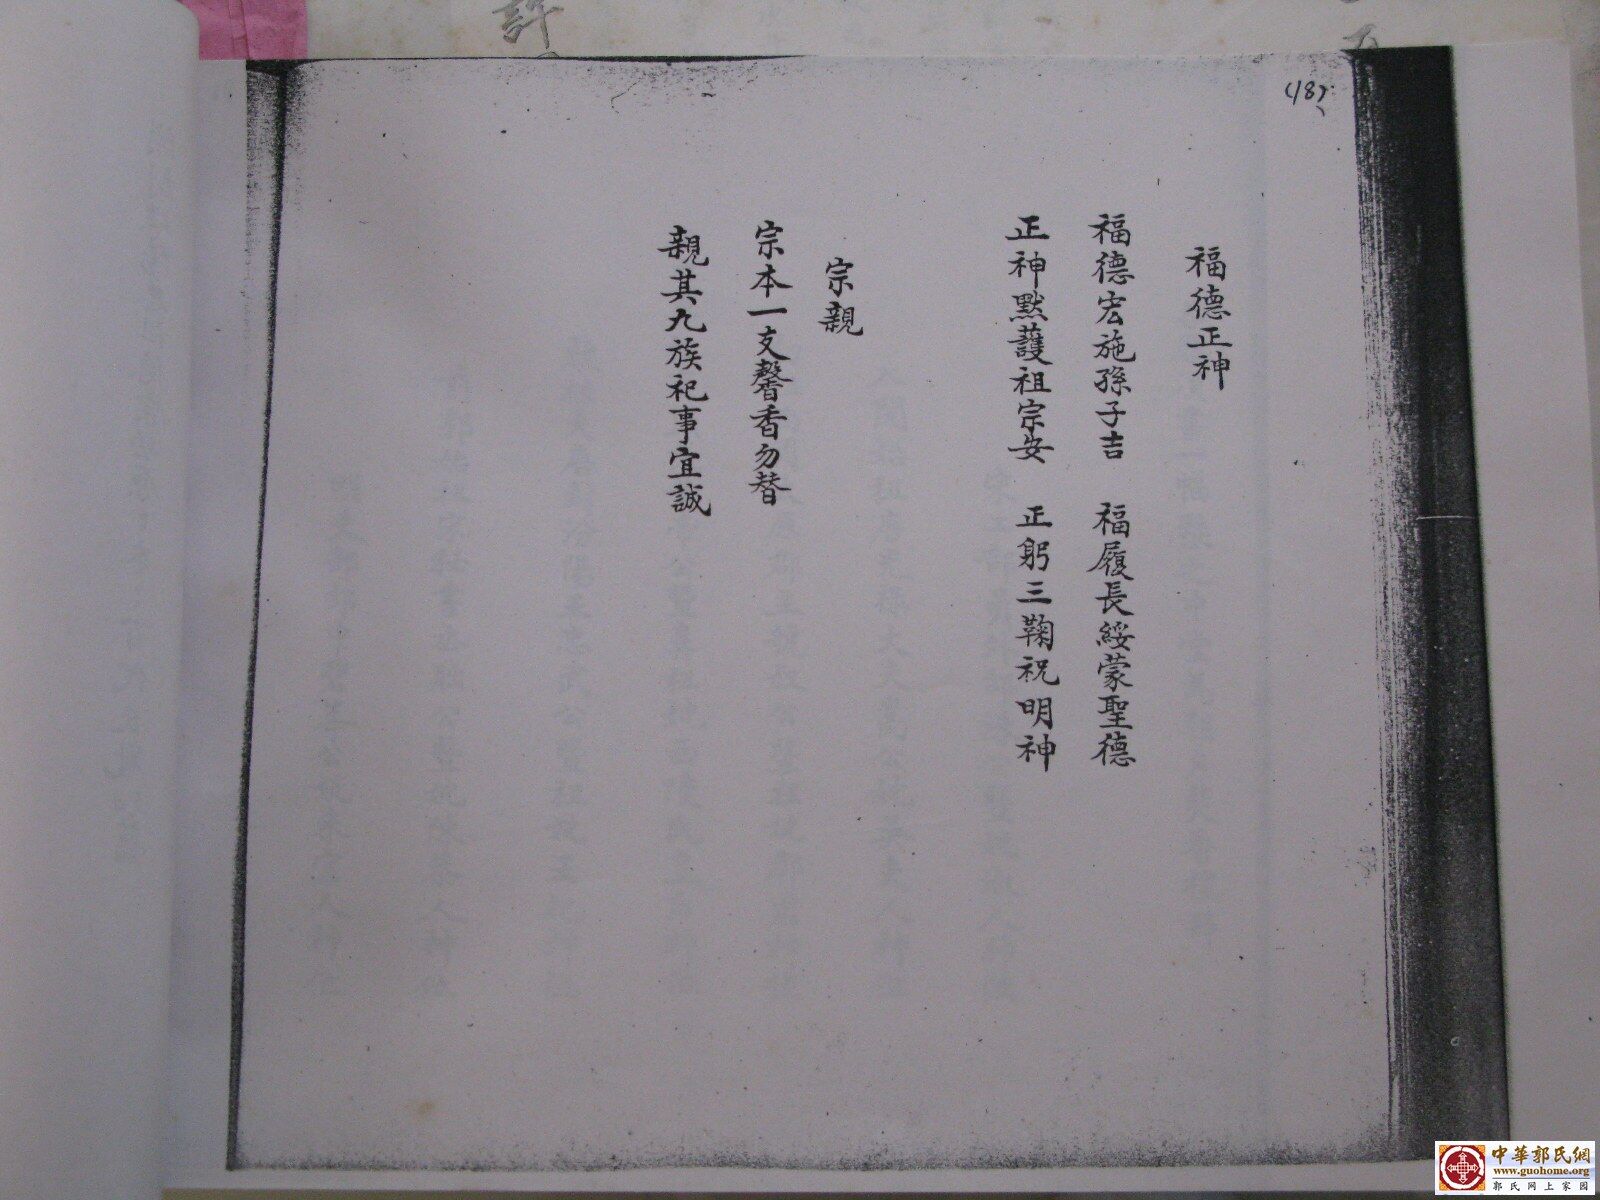 (18)
福德正神
福德宏施孫子吉　福履長綏蒙聖德
正神默護祖宗安　正躬三鞠祝明神
宗親
宗本一支馨香勿替
親其九族祀事宜誠
許
中華郭氏網
www.guohome.org
郭氏网上家园